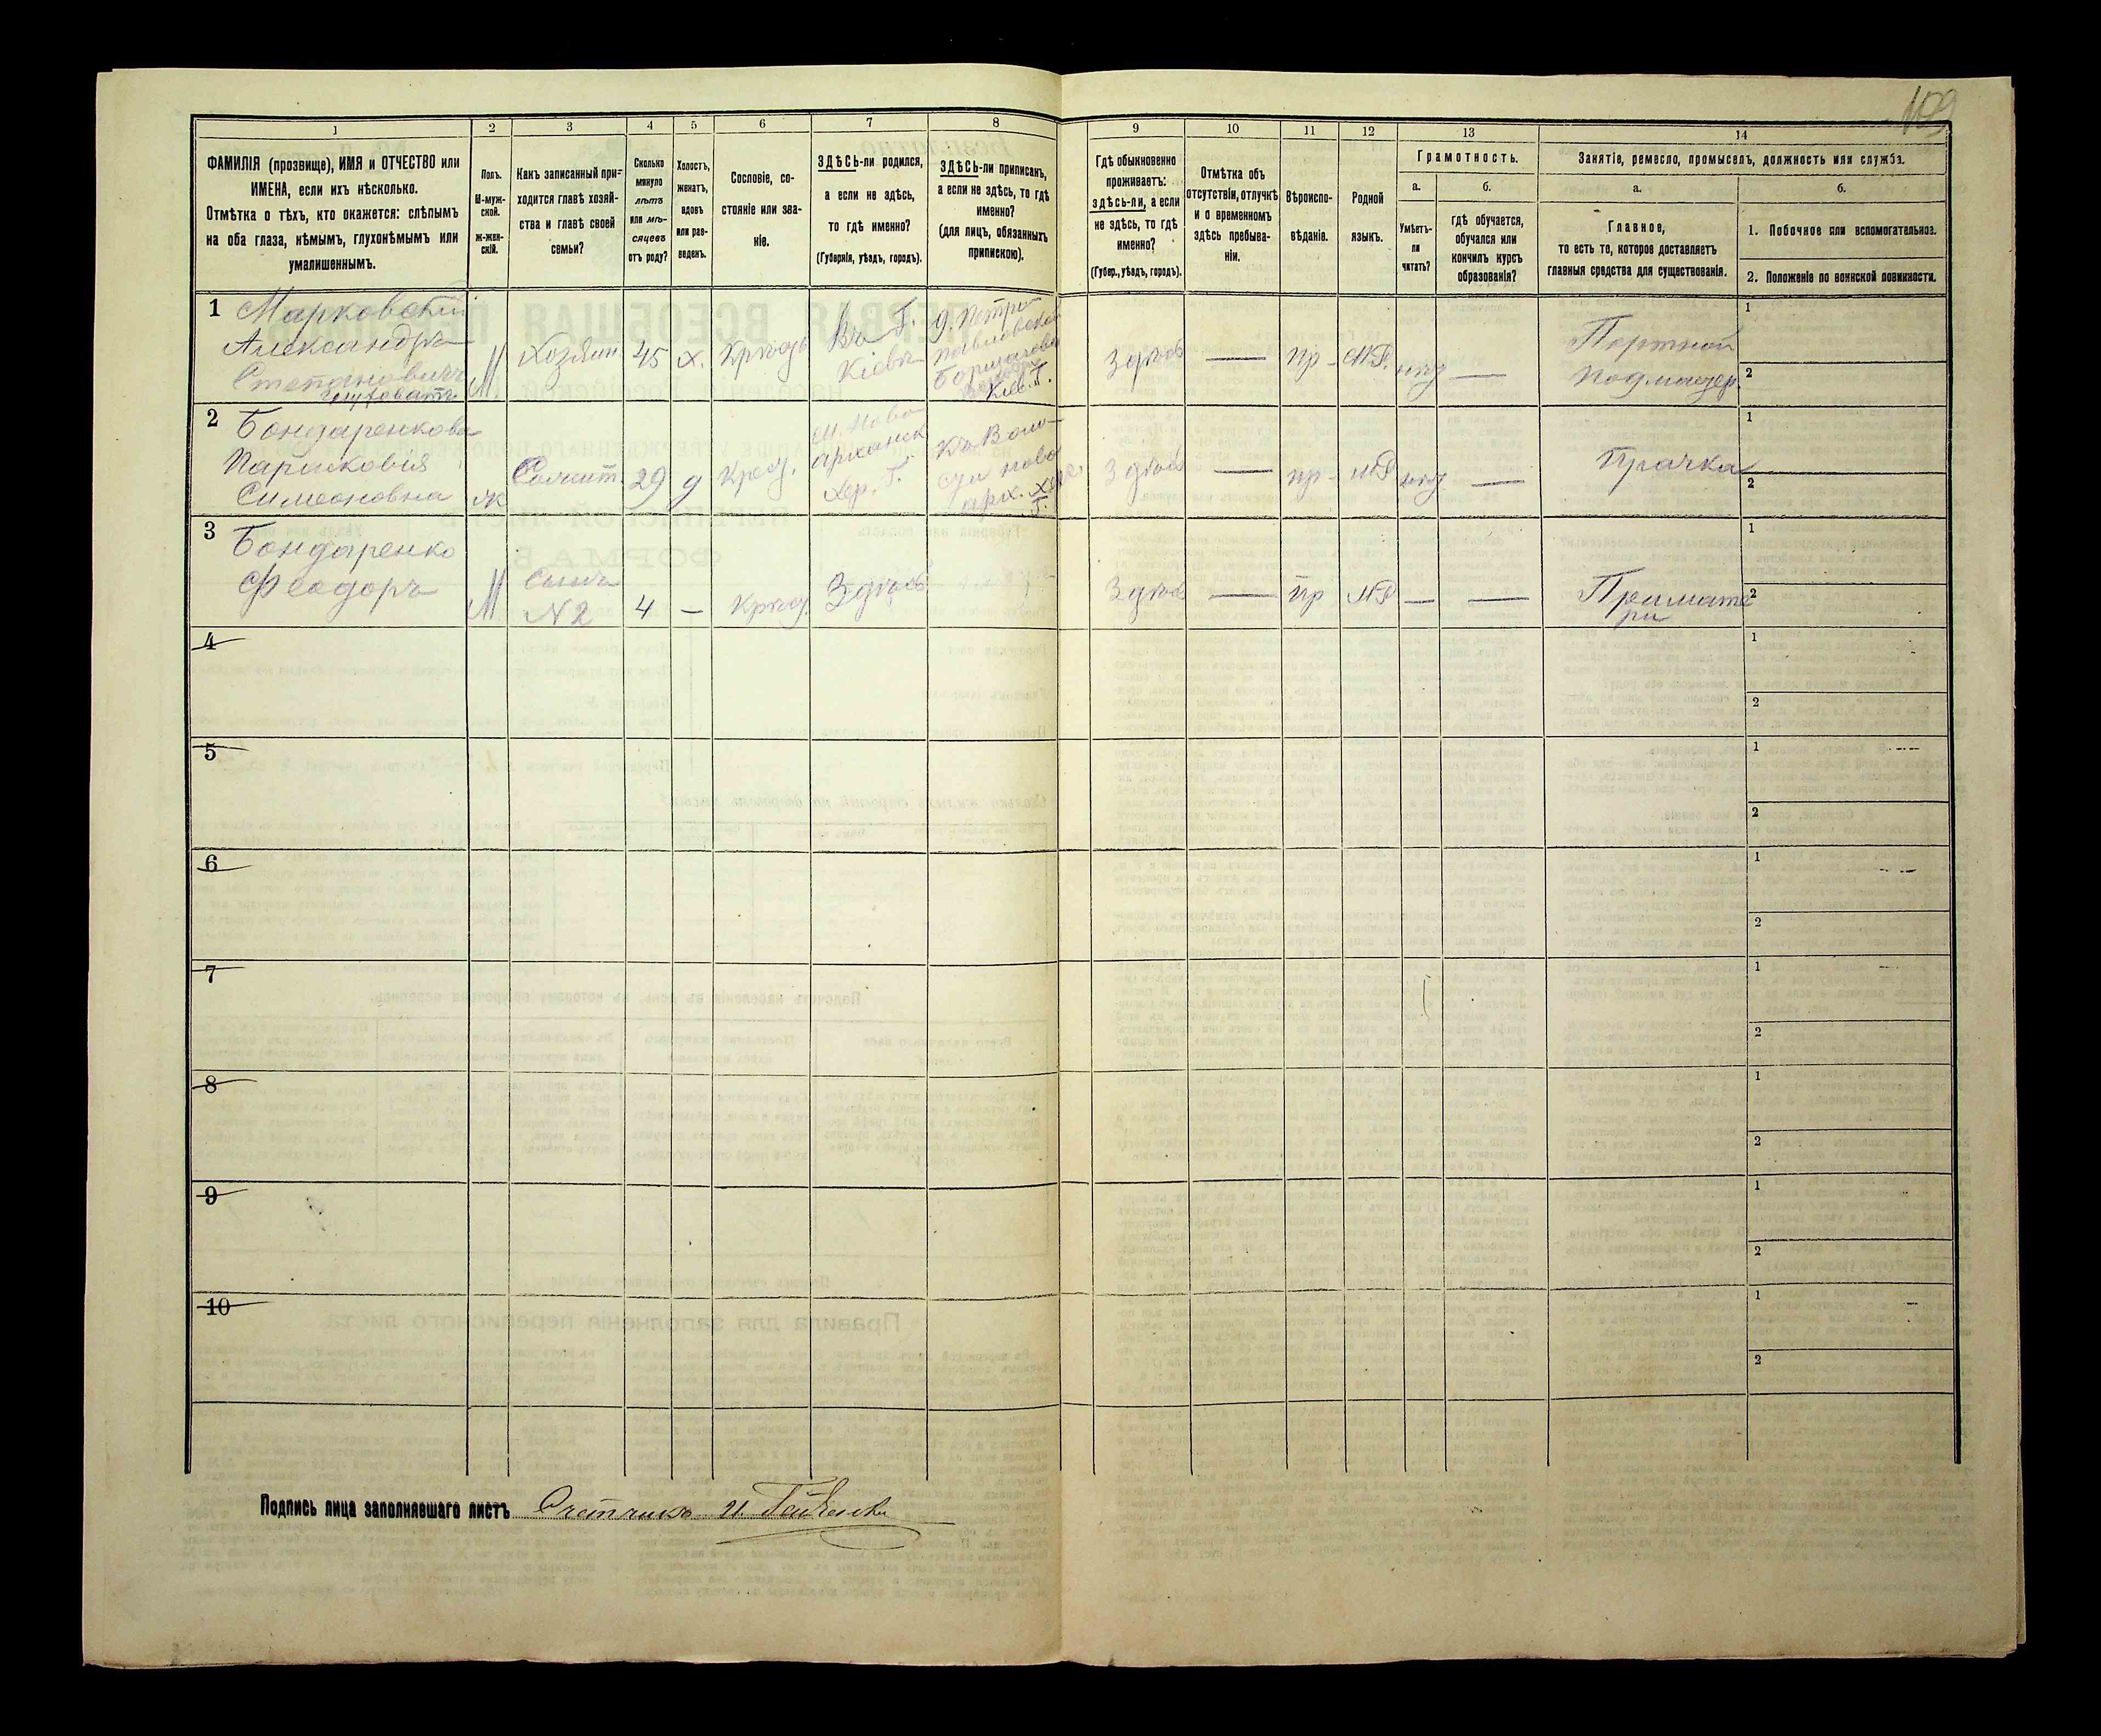 109
1
2
3
4
5
6
7
8
9
10
11
12
13
14
ФАМИЛІЯ (прозвище), ИМЯ и ОТЧЕСТВО или
ИМЕНА, если ихъ нѣсколько.
Отмѣтка о тѣхъ, кто окажется: слѣпымъ
на оба глаза, нѣмымъ, глухонѣмымъ или
умалишеннымъ.
Полъ.
М-муж-
ской.
Ж-жен-
скій.
Какъ записанный при-
ходится главѣ хозяй-
ства и главѣ своей
семьи?
Сколько
минуло
лѣтъ
или мѣ-
сяцевъ
отъ роду?
Холостъ,
женатъ,
вдовъ
или раз-
веденъ.
Сословіе, со-
стояніе или зва-
ніе.
ЗДѢСЬ-ли родился,
а если не здѣсь,
то гдѣ именно?
(Губернія, уѣздъ, городъ).
ЗДѢСЬ-ли приписанъ,
а если не здѣсь, то гдѣ
именно?
(для лицъ, обязанныхъ
припискою).
Гдѣ обыкновенно
проживаетъ:
здѣсь-ли, а если
не здѣсь, то гдѣ
именно?
(Губер., уѣздъ, городъ).
Отмѣтка объ
отсутствіи, отлучкѣ
и о временномъ
здѣсь пребыва-
ніи.
Вѣроиспо-
вѣданіе.
Родной
языкъ.
Грамотность.
а.
Умѣетъ-
ли
читать?
б.
гдѣ обучается,
обучался или
кончилъ курсъ
образованія?
Занятіе, ремесло, промыселъ, должность или служба.
а.
Главное,
то есть то, которое доставляетъ
главныя средства для существованія.
б.
1. Побочное или вспомогательное.
2. Положеніе по воинской повинности.
1 Марковскій
Александръ
Степановичъ
М
Хозяин
45
х.
Крѣсд
Въ Г.
Кіевъ
д. Петро
павловской
Борщаговк
Кіев. Г.
Здѣсь
—
пр
МР.
нѣт
—
Портной
подмастер.
1
2
2 Бондаренкова
Парасковія
Симеоновна
ж
29
д
Кресд.
м. Ново
арханск
Хер. Г.
Къ Воло-
сти ново
арх. Хер.
Г.
Здѣсь
—
пр
МР
нѣт
—
Прачка
1
2
3 Бондаренко
Феодоръ
М
Сынъ
N 2
4
—
Крѣсд.
Здѣсь
Здѣсь
—
пр
МР
—
—
При мате
ри
1
2
4
1
2
5
1
2
6
1
2
7
1
2
8
1
2
9
1
2
10
1
2
Подпись лица заполнявшаго листъ Счетчикъ И.